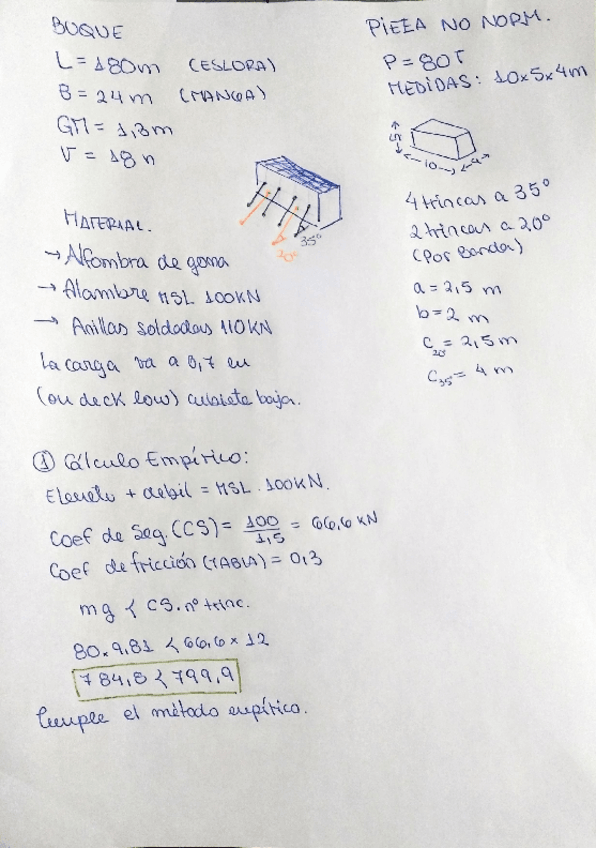 BUQUE
L = 180m (ESLORA)
B = 24m (MANGA)
GM = 1,3m
V = 18 n
PIEZA NO NORM.
P = 80T
MEDIDAS: 10x5x4m
5
10
4
35°
20°
4 trincas a 35°
2 trincas a 20°
(Por Banda)
a = 2,5 m
b = 2 m
C20° = 2,5m
C35° = 4 m
MATERIAL.
→ Alfombra de goma
→ Alambre MSL 100KN
→ Anillas soldadas 110KN
La carga va a 0,7 en
(on deck low) cubierta baja.
① Cálculo Empírico:
Elemento + debil = MSL . 100KN.
Coef de Seg. (CS) = 100/1,5 = 66,6 KN
Coef de fricción (TABLA) = 0,3
mg < CS. nº trinc.
80.9,81 < 66,6 x 12
784,8 < 799,9
Cumple el método empírico.